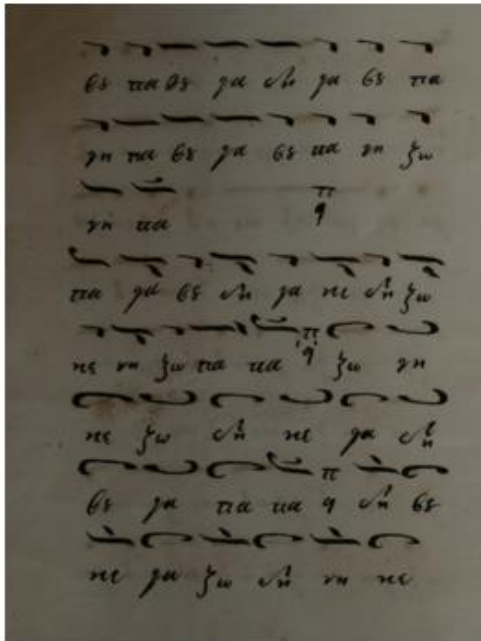 βȣ πα βȣ γα δι γα βȣ πα
νη πα βȣ γα βȣ πα νη ζω
νη πα π
πα γα βȣ δι γα κε δι ζω
κε νη ζω πα πα π ζω νη
κε ζω δι κε γα δι
βȣ γα πα πα π δι βȣ
κε γα ζω δι νη κε